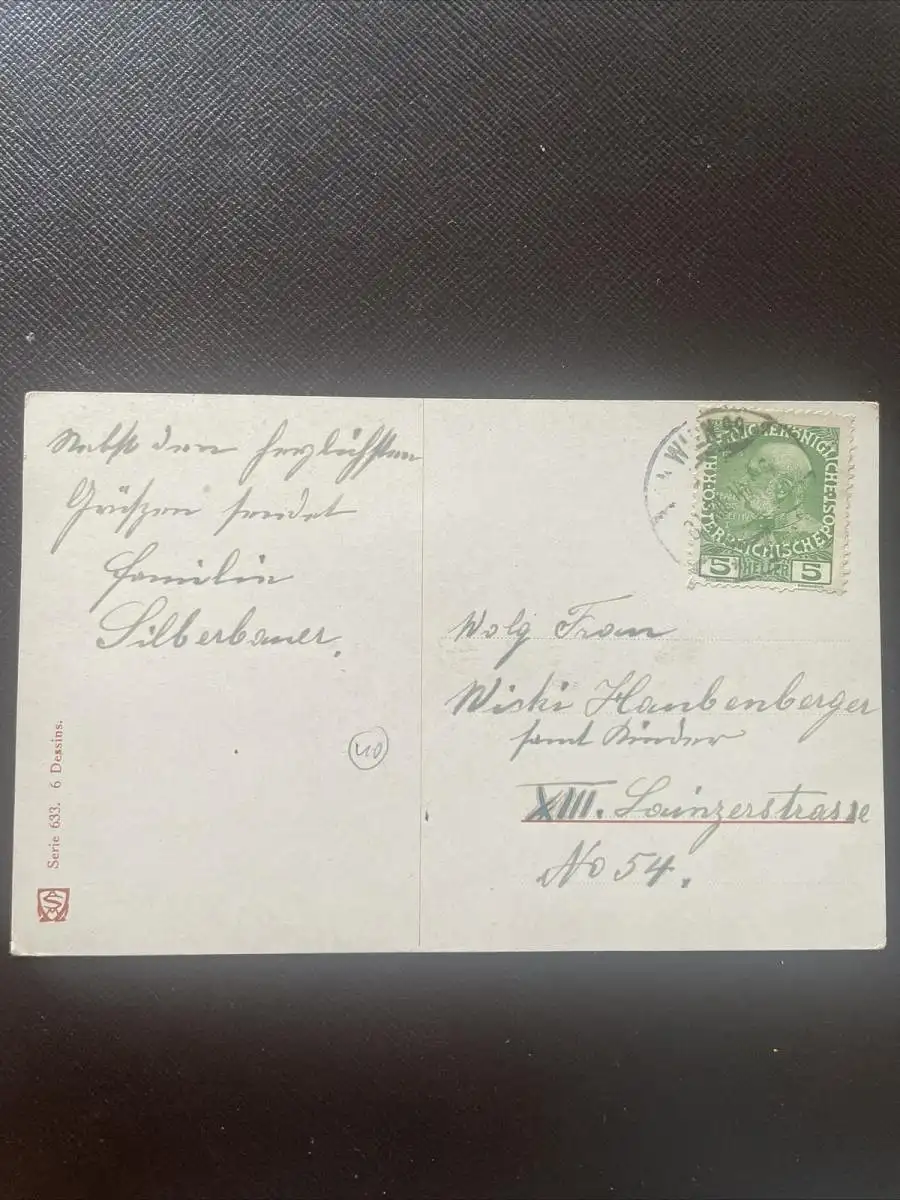 Nebst den herzlichsten
Grüßen sendet
Familie
Silberbauer.
Serie 633. 6 Dessins.
40
WIEN
KAISERLICHE KÖNIGLICHE
ÖSTERREICHISCHE POST
5 HELLER 5
Wolg Frau
Wicki Haubenberger
samt Kinder
XIII. Lainzerstrasse
No 54.